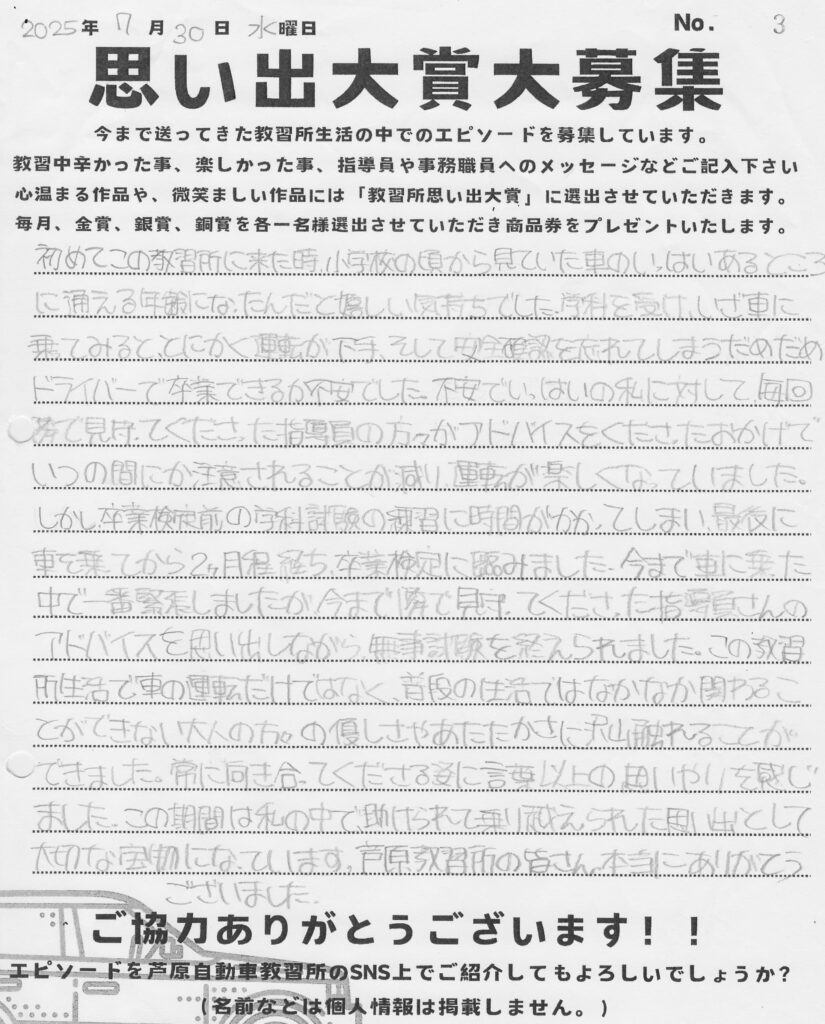 2025年 7月 30日 水曜日 No. 3
思い出大賞大募集
今まで送ってきた教習所生活の中でのエピソードを募集しています。
教習中辛かった事、楽しかった事、指導員や事務職員へのメッセージなどご記入下さい
心温まる作品や、微笑ましい作品には「教習所思い出大賞」に選出させていただきます。
毎月、金賞、銀賞、銅賞を各一名様選出させていただき商品券をプレゼントいたします。
初めてこの教習所に来た時、小学校の頃から見ていた車のいっぱいあるところ
に通える年齢になったんだと嬉しい気持ちでした。学科を受け、いざ車に
乗ってみると、とにかく運転が下手、そして安全確認を忘れてしまうだめだめ
ドライバーで卒業できるか不安でした。不安でいっぱいの私に対して、毎回
隣で見守ってくださった指導員の方々がアドバイスをくださったおかげで
いつの間にか注意されることが減り、運転が楽しくなっていました。
しかし、卒業検定前の学科試験の練習に時間がかかってしまい、最後に
車を乗ってから2ヶ月程経ち、卒業検定に臨みました。今まで車に乗った
中で一番緊張しましたが、今まで隣で見守ってくださった指導員さんの
アドバイスを思い出しながら、無事試験を終えられました。この教習
所生活で車の運転だけではなく、普段の生活ではなかなか関わるこ
とができない大人の方々の優しさやあたたかさに沢山触れることが
できました。常に向き合ってくださる姿に言葉以上の思いやりを感じ
ました。この期間は私の中で、助けられて乗り越えられた思い出として
大切な宝物になっています。芦原教習所の皆さん、本当にありがとう
ございました。
ご協力ありがとうございます！！
エピソードを芦原自動車教習所のSNS上でご紹介してもよろしいでしょうか？
(名前などは個人情報は掲載しません。)